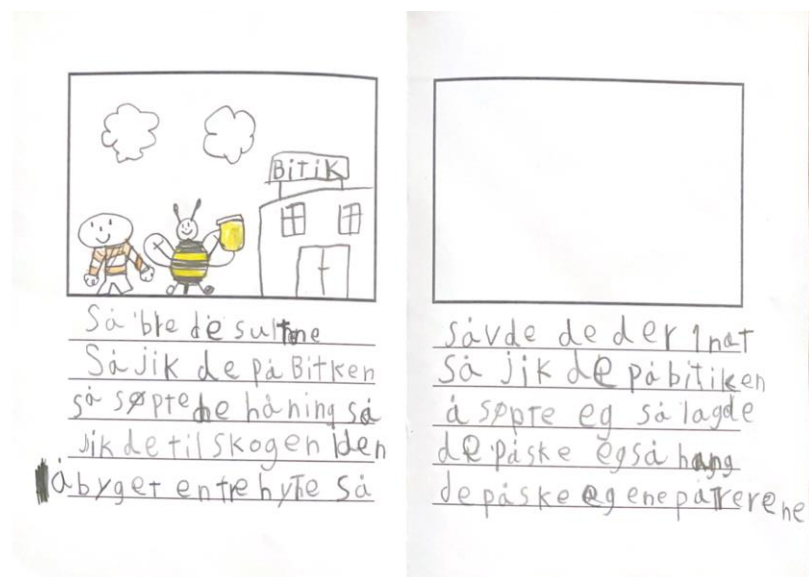 BITIK
Så ble de sultne
Så jik de på Bitken
så søpte de håning så
jik de til skogen iden
å byget entre hyte Så
såvde de der 1 nat
så jik de på bitiken
å søpte eg så lagde
de påske eg så hang
de påske eg ene på trerene